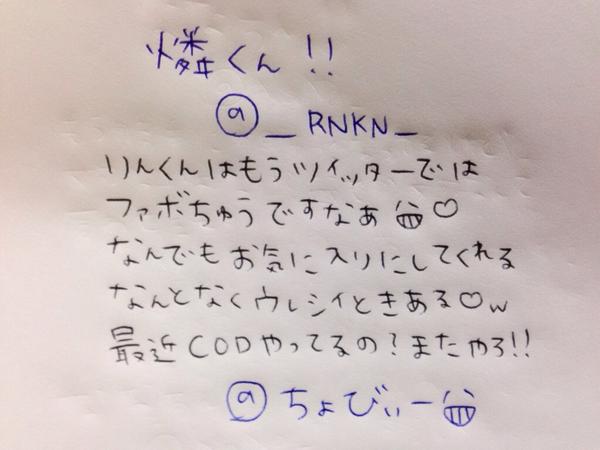 燐くん!!
@__RNKN_
りんくんはもうツイッターでは
ファボちゅうですなあ😁♡
なんでもお気に入りにしてくれる
なんとなくウレシイときある♡w
最近CODやってるの?またやろ!!
@ちょびぃー😁